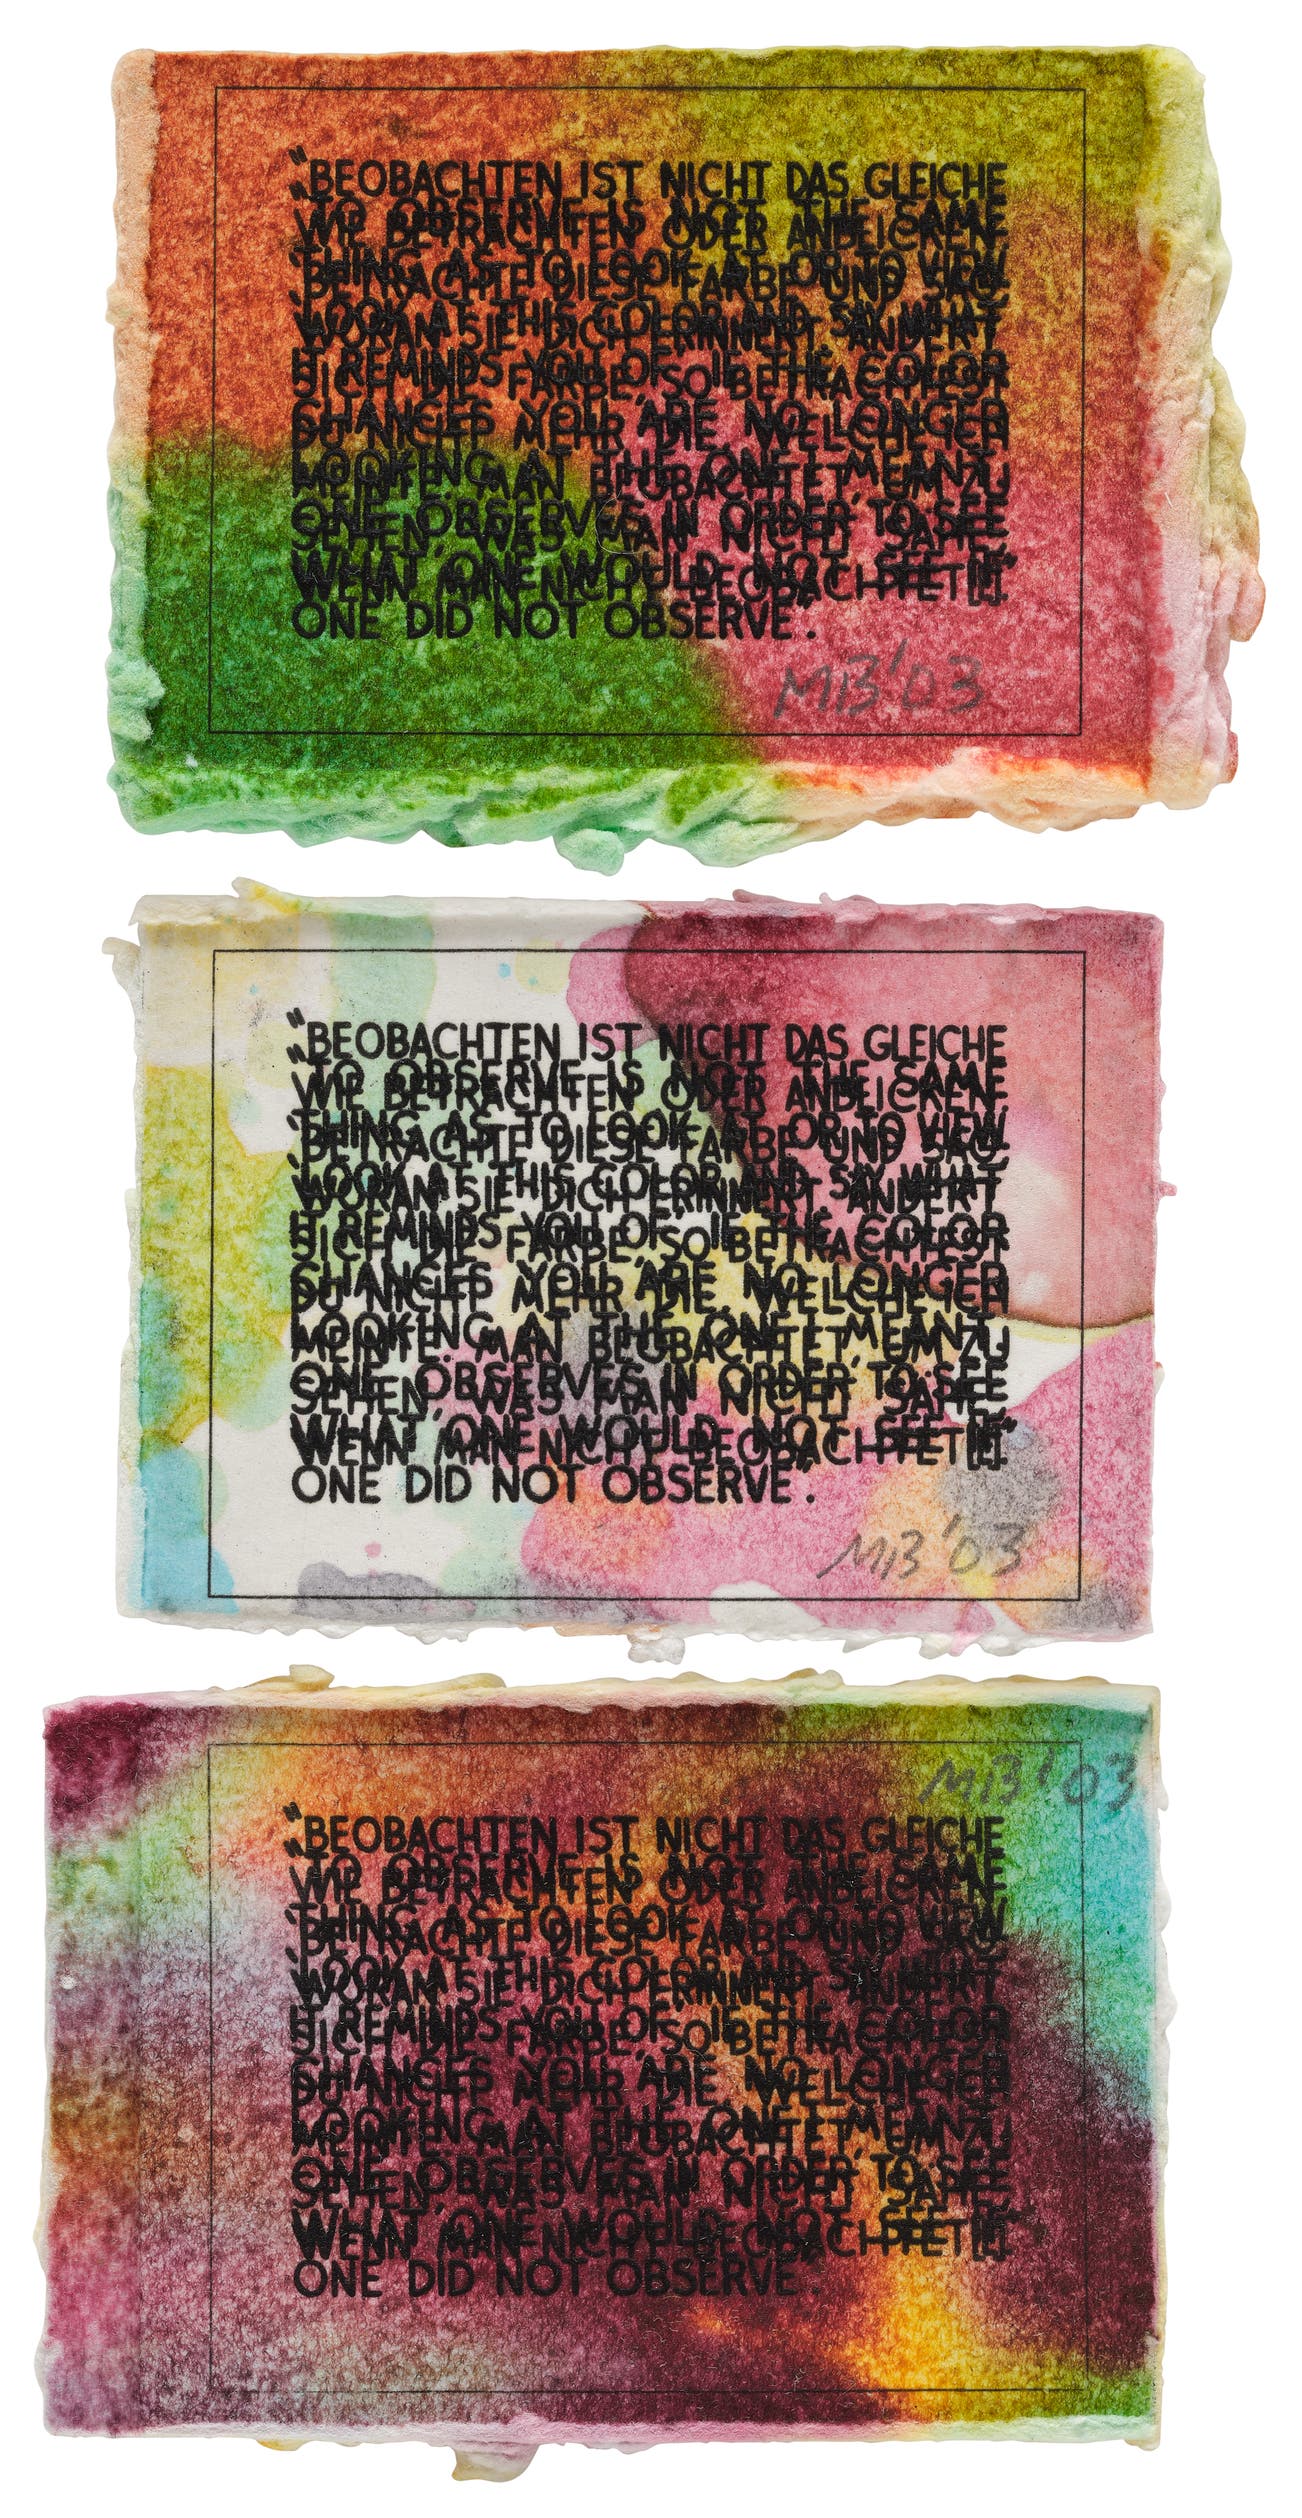 "BEOBACHTEN IST NICHT DAS GLEICHE
"TO OBSERVE IS NOT THE SAME
WIE BETRACHTEN ODER ANBLICKEN.
THING AS TO LOOK AT OR TO VIEW.
'BETRACHTE DIESE FARBE UND SAG,
'LOOK AT THIS COLOR AND SAY WHAT
WORAN SIE DICH ERINNERT'. ÄNDERT
IT REMINDS YOU OF'. IF THE COLOR
SICH DIE FARBE, SO BETRACHTEST
CHANGES YOU ARE NO LONGER
DU NICHT MEHR DIE, WELCHE ICH
LOOKING AT THE ONE I MEANT.
MEINTE. MAN BEOBACHTET, UM ZU
ONE OBSERVES IN ORDER TO SEE
SEHEN, WAS MAN NICHT SÄHE,
WHAT ONE WOULD NOT SEE IF
WENN MAN NICHT BEOBACHTET[E]."
ONE DID NOT OBSERVE".
MB '03
"BEOBACHTEN IST NICHT DAS GLEICHE
"TO OBSERVE IS NOT THE SAME
WIE BETRACHTEN ODER ANBLICKEN.
THING AS TO LOOK AT OR TO VIEW.
'BETRACHTE DIESE FARBE UND SAG,
'LOOK AT THIS COLOR AND SAY WHAT
WORAN SIE DICH ERINNERT'. ÄNDERT
IT REMINDS YOU OF'. IF THE COLOR
SICH DIE FARBE, SO BETRACHTEST
CHANGES YOU ARE NO LONGER
DU NICHT MEHR DIE, WELCHE ICH
LOOKING AT THE ONE I MEANT.
MEINTE. MAN BEOBACHTET, UM ZU
ONE OBSERVES IN ORDER TO SEE
SEHEN, WAS MAN NICHT SÄHE,
WHAT ONE WOULD NOT SEE IF
WENN MAN NICHT BEOBACHTET[E]."
ONE DID NOT OBSERVE".
MB '03
MB '03
"BEOBACHTEN IST NICHT DAS GLEICHE
"TO OBSERVE IS NOT THE SAME
WIE BETRACHTEN ODER ANBLICKEN.
THING AS TO LOOK AT OR TO VIEW.
'BETRACHTE DIESE FARBE UND SAG,
'LOOK AT THIS COLOR AND SAY WHAT
WORAN SIE DICH ERINNERT'. ÄNDERT
IT REMINDS YOU OF'. IF THE COLOR
SICH DIE FARBE, SO BETRACHTEST
CHANGES YOU ARE NO LONGER
DU NICHT MEHR DIE, WELCHE ICH
LOOKING AT THE ONE I MEANT.
MEINTE. MAN BEOBACHTET, UM ZU
ONE OBSERVES IN ORDER TO SEE
SEHEN, WAS MAN NICHT SÄHE,
WHAT ONE WOULD NOT SEE IF
WENN MAN NICHT BEOBACHTET[E]."
ONE DID NOT OBSERVE".